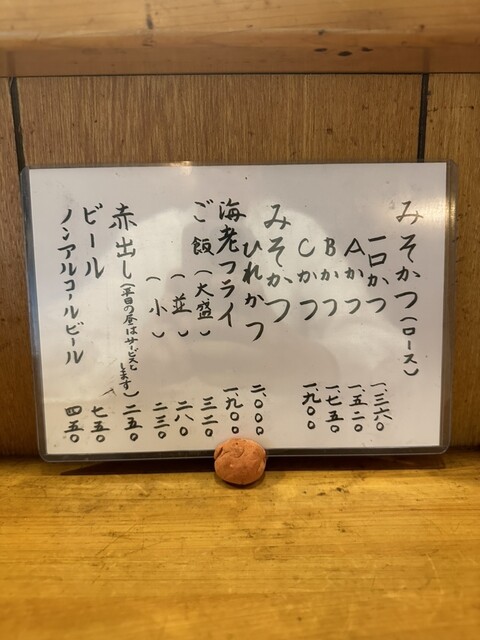 みそかつ(ロース)
一口かつ 一、三六〇
Aかつ 一、五二〇
Bかつ 一、七五〇
Cかつ 一、九〇〇
みそかつ
ひれかつ 二、〇〇〇
海老フライ 一、九〇〇
ご飯(大盛) 三二〇
(並) 二八〇
(小) 二三〇
赤出し(平日の昼はサービスします) 二五〇
ビール 七五〇
ノンアルコールビール 四五〇